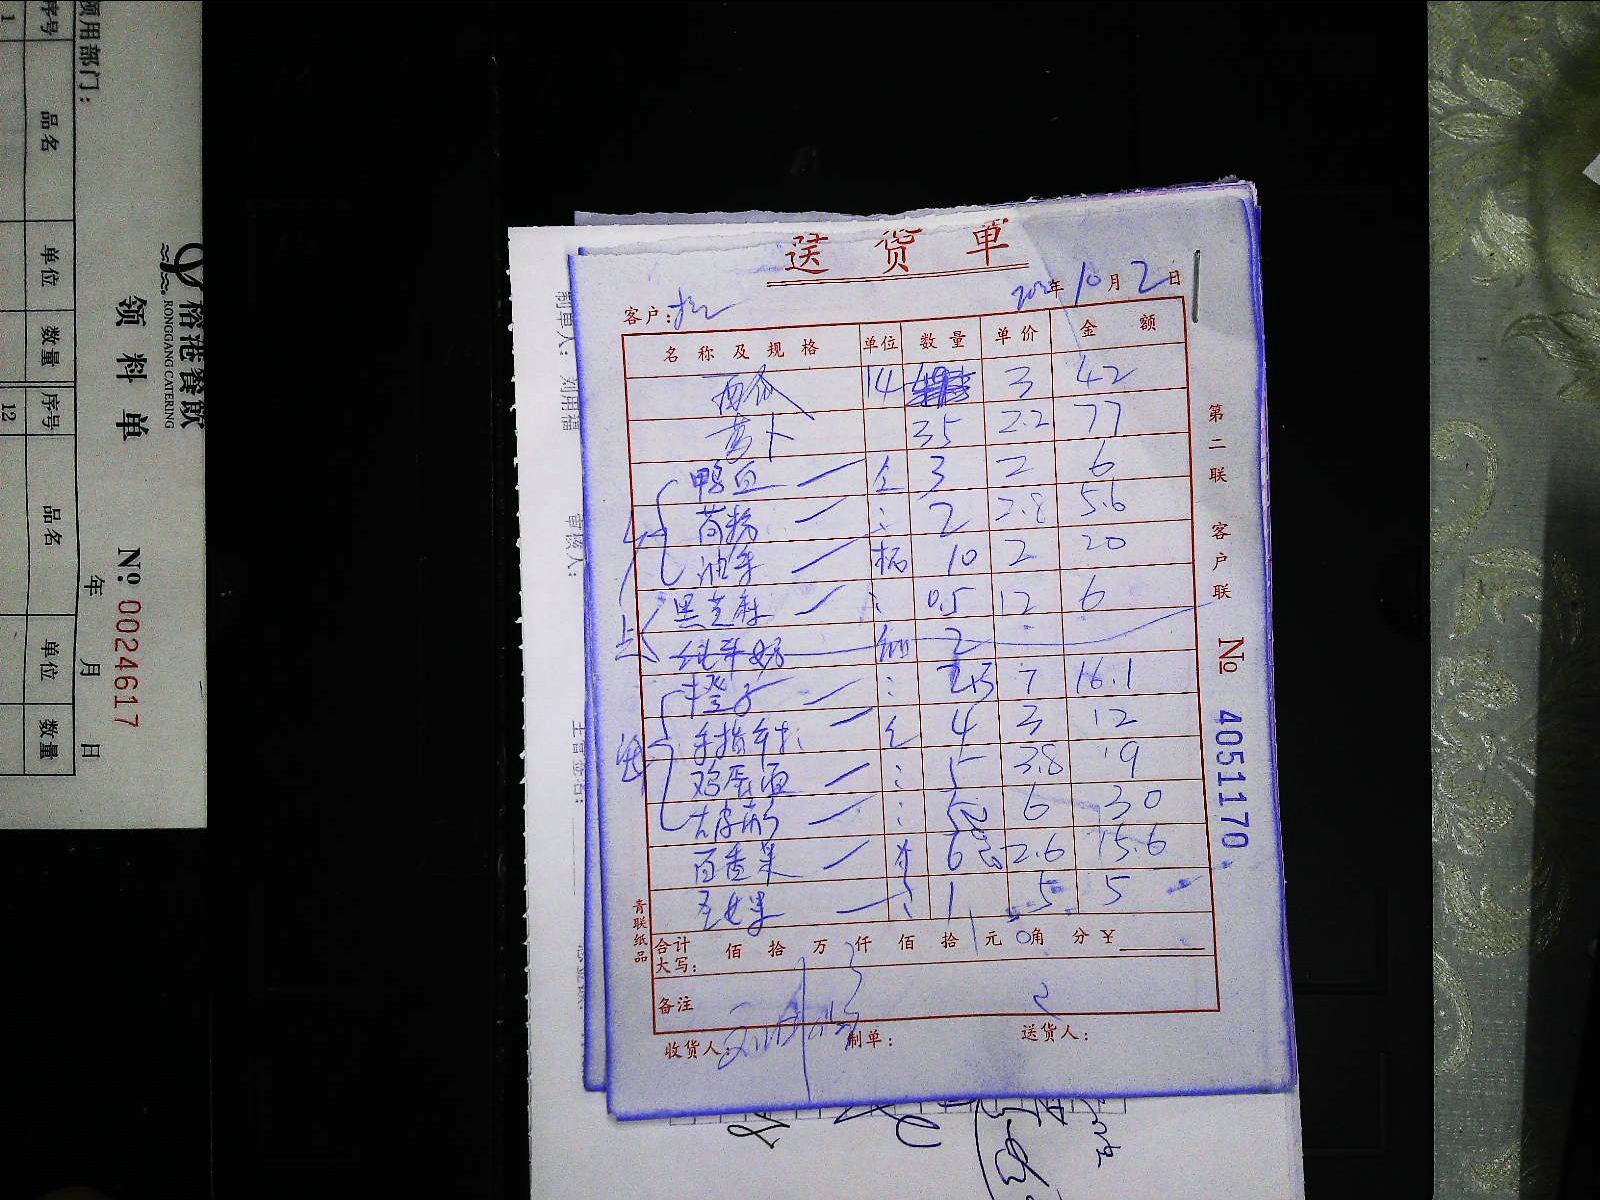 送货单
年10月2日
客户:
名称及规格 单位 数量 单价 金额
西瓜 14 3 42
萝卜 35 2.2 77
鸭血 3 2 6
苕粉 2 2.8 5.6
油条 10 2 20
黑芝麻 0.5 12 6
纯牛奶 2
橙子 7 16.1
4 3 12
鸡蛋面 5 3.8 19
6 30
百香果 6 2.6 15.6
圣女果 1 5 5
合计大写: 佰 拾 万 仟 佰 拾 元 0角 分 ¥
备注
收货人: 制单: 送货人:
第二联 客户联
№ 4051170
青联纸品
裕港餐飲
RONGGANG CATERING
领料单
№ 0024617
领用部门:
年 月 日
序号 品名 单位 数量 序号 品名 单位 数量
1 12
制单人: 刘用福
审核人: